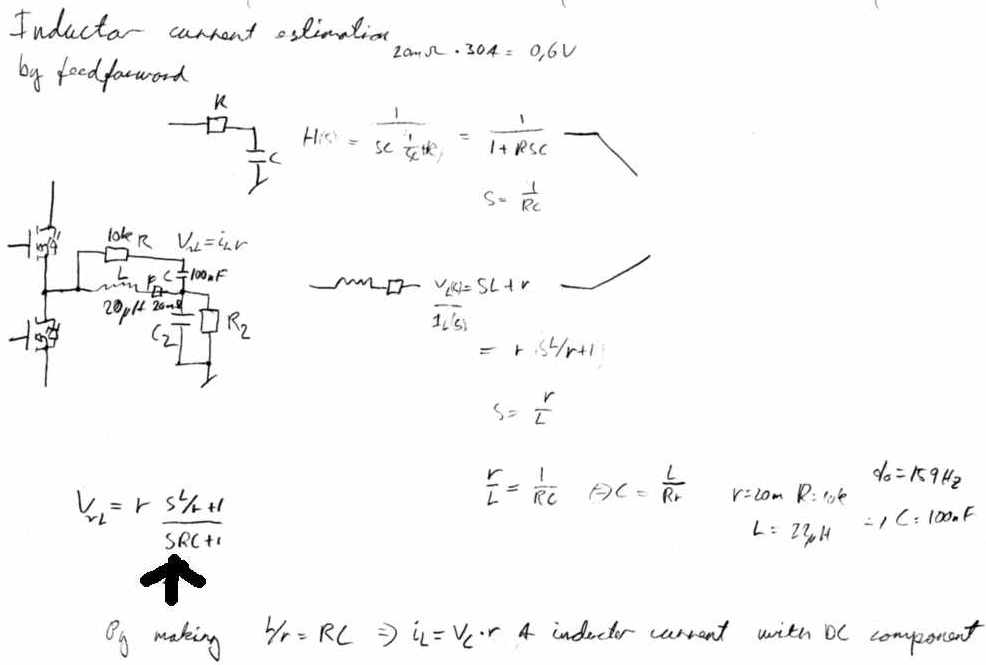 Inductor current estimation
by feedforward
20mΩ · 30A = 0,6V
R
C
H(s) = 1 / (SC (1/SC + R)) = 1 / (1 + RSC)
S = 1/RC
10k R
V_rL = i_L r
L
r
C
100nF
20mΩ
C2
R2
V_L(s) / I_L(s) = SL + r
= r (S L/r + 1)
S = r/L
r/L = 1/RC => C = L/Rr
r = 20m R = 10k
f0 = 159Hz
L = 22µH => C = 100nF
V_rL = r (S L/r + 1) / (SRC + 1)
By making L/r = RC => i_L = V_C · r inductor current with DC component